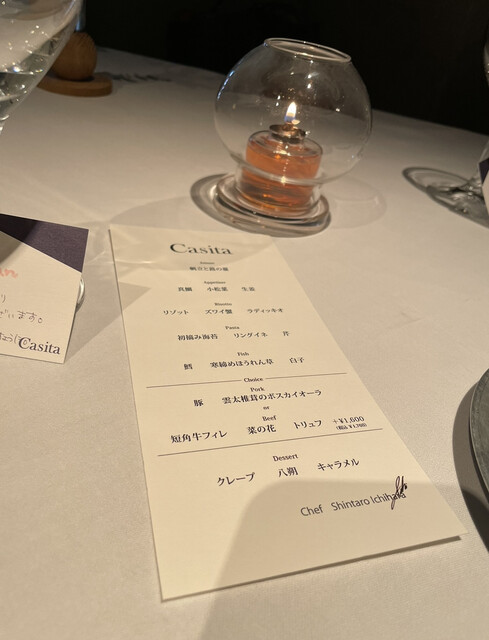 Casita
Appetizer
真鯛 小松菜 生姜
Risotto
リゾット ズワイ蟹 ラディッキオ
Pasta
初摘み海苔 リングイネ 芹
Fish
鱈 寒締めほうれん草 白子
Choice
Pork
豚 雲太椎茸のボスカイオーラ
or
Beef
短角牛フィレ 菜の花 トリュフ +¥1,600
(税込 ¥1,760)
Dessert
クレープ 八朔 キャラメル
Chef Shintaro Ichihara
 います。
Casita